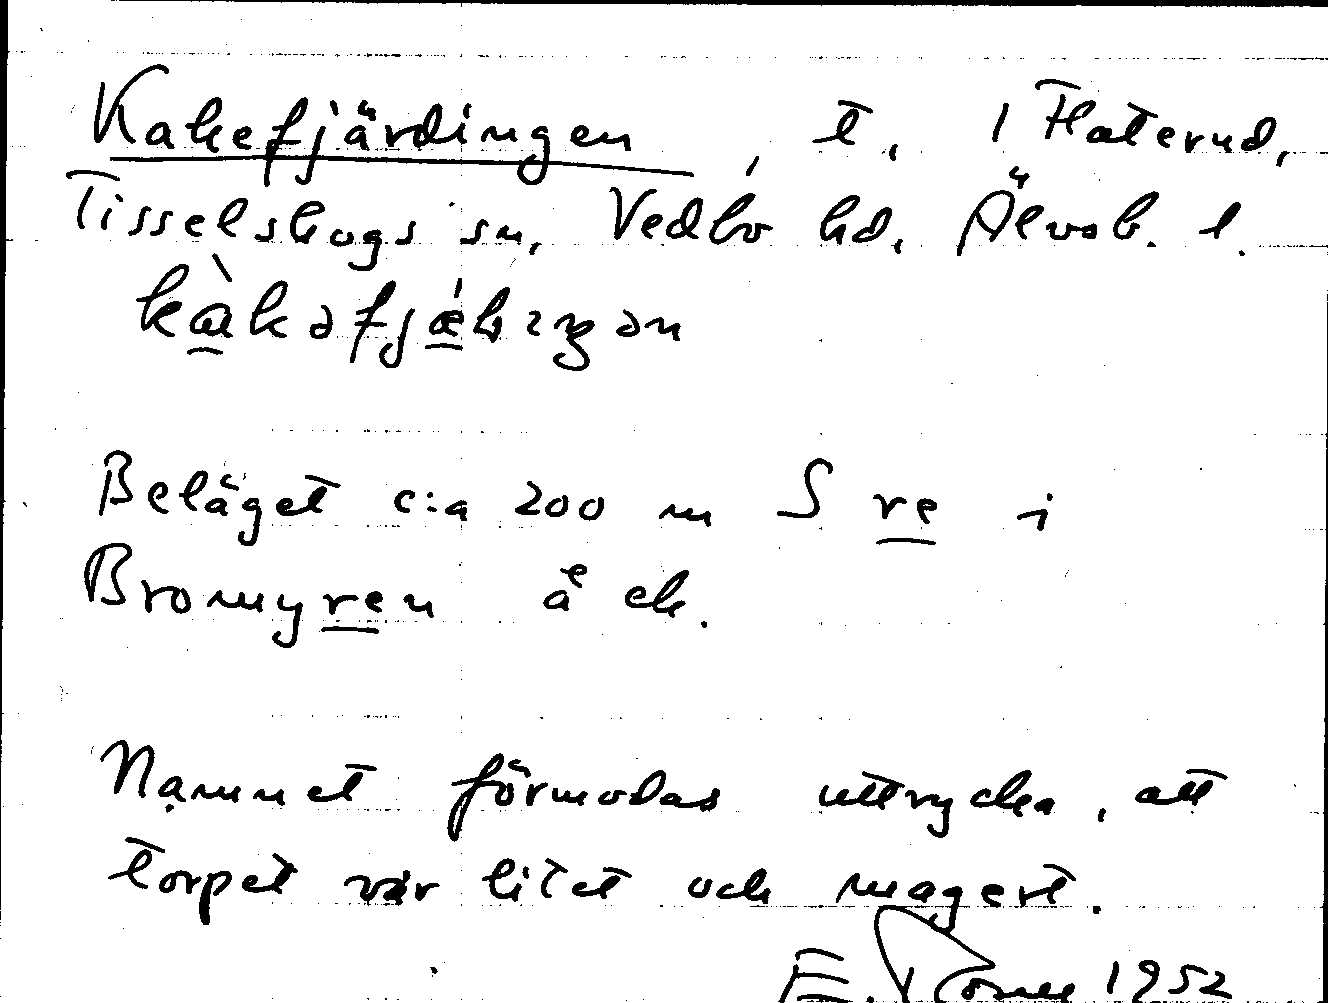 Kakefjärdingen, t. 1 Haterud,
Tisselskogs sn, Vedbo hd, Älvsb. l.
Beläget c:a 200 m S re i
Bromyren å ek.
Namnet förmodas uttrycka, att
torpet var litet och magert.
E. 1952